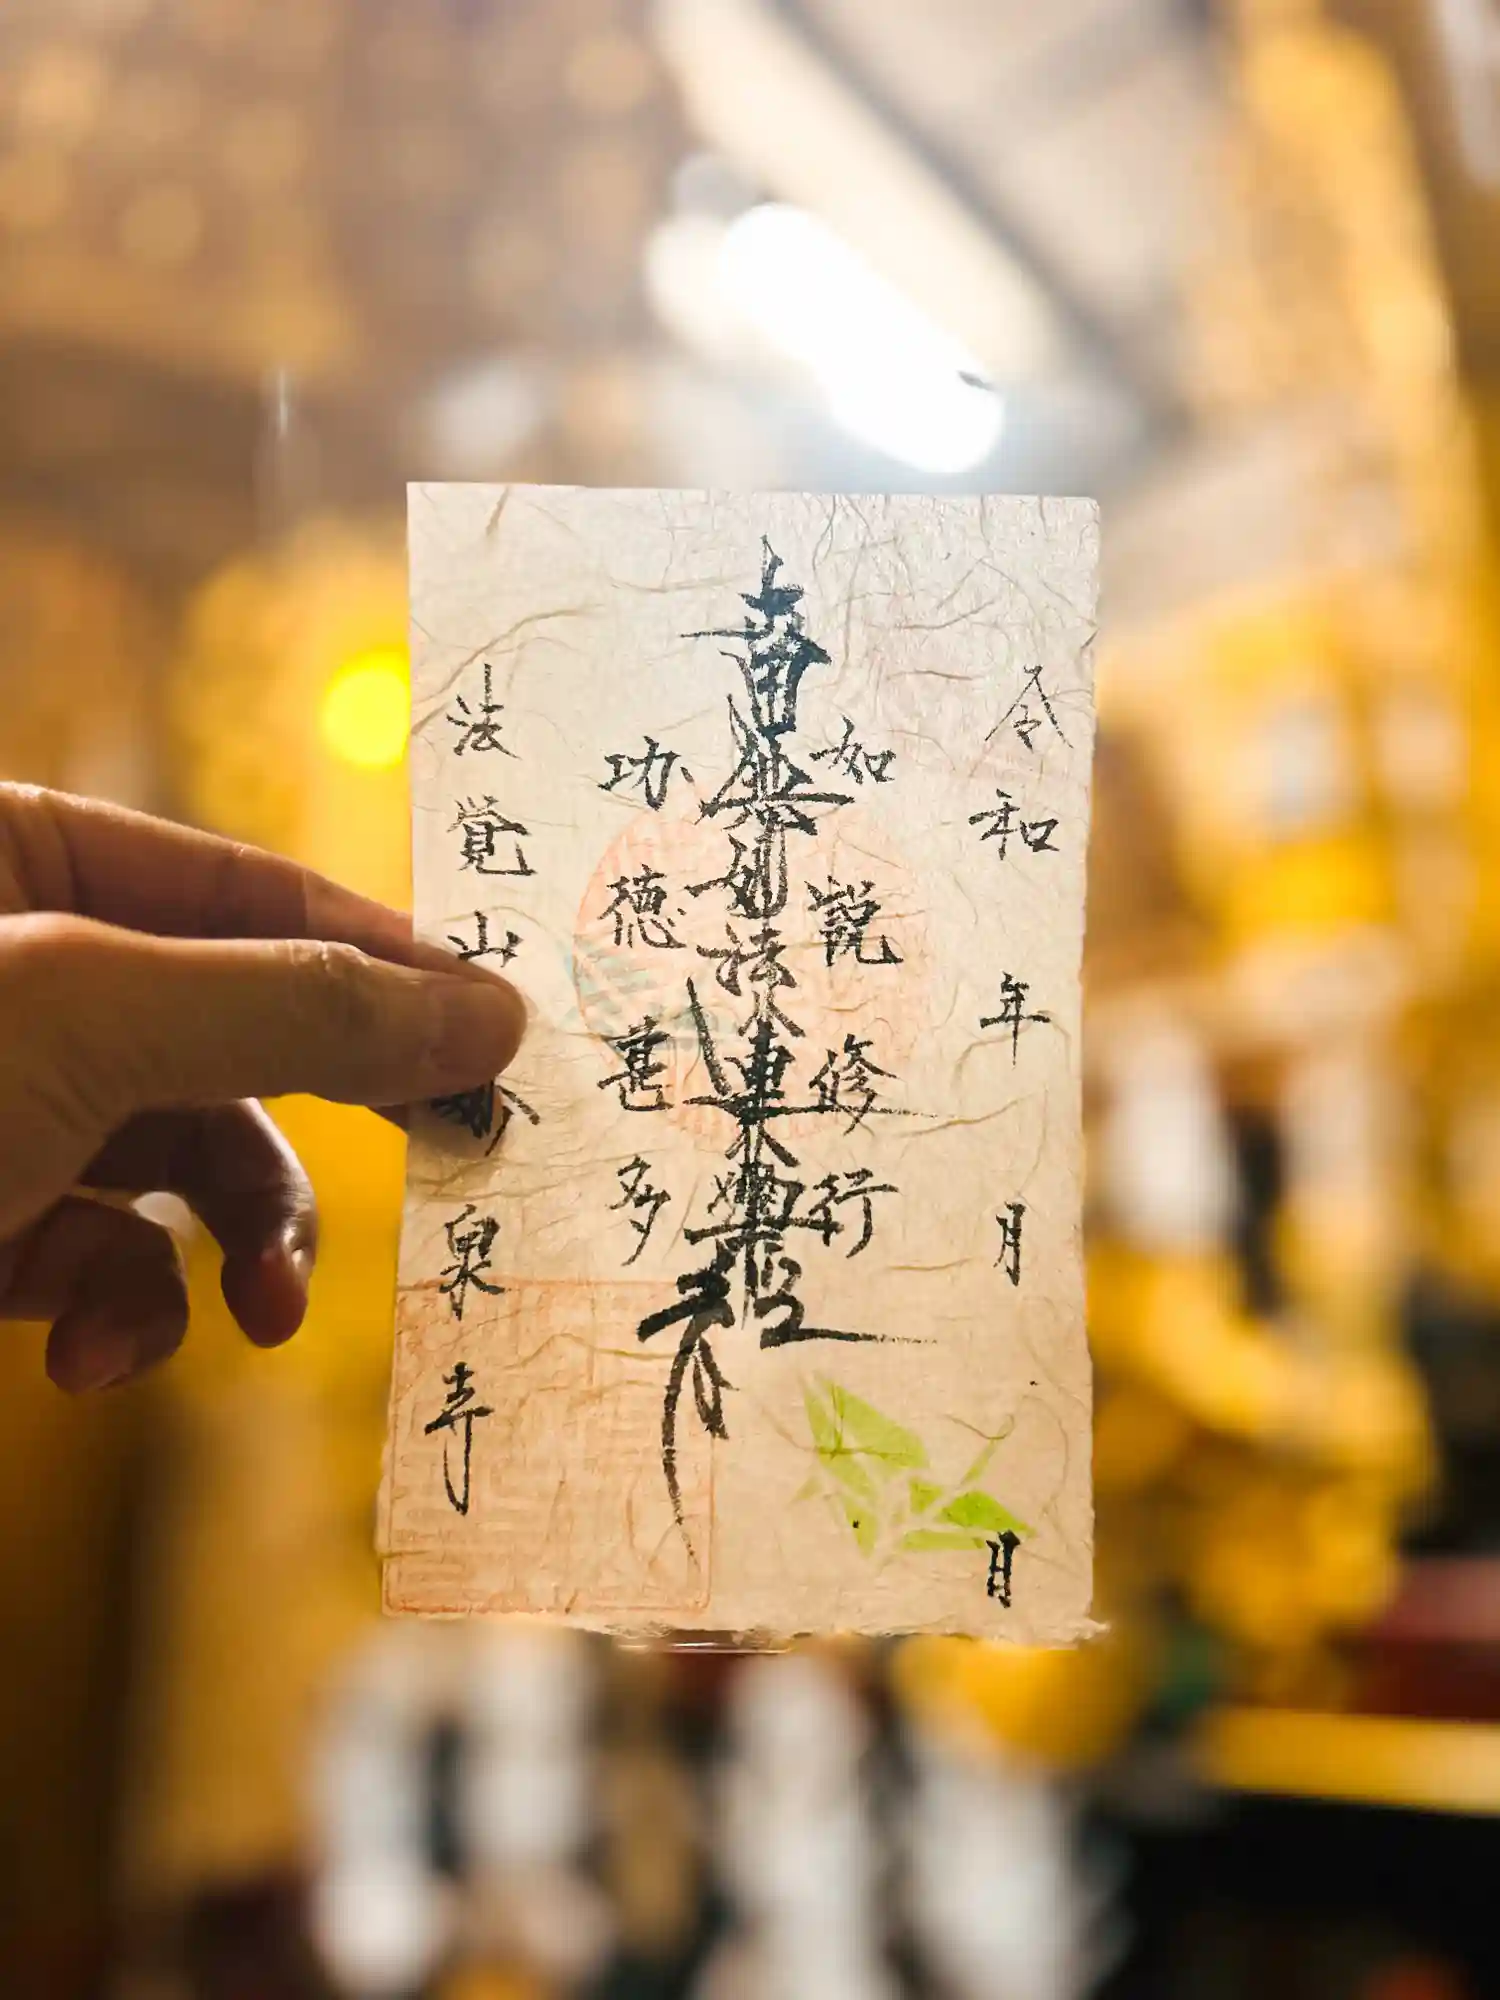 令和 年 月 日
如説修行
南無妙法蓮華経
功徳甚多
法覚山 泉寺